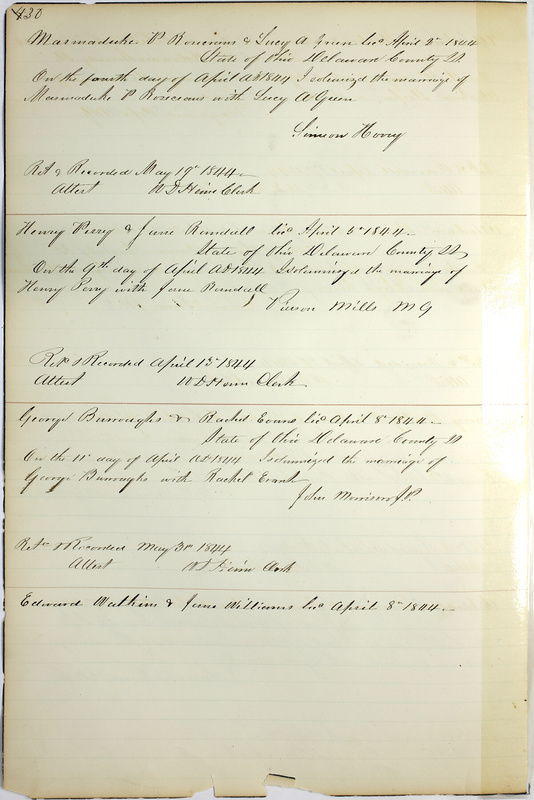 430
Marmaduke P Rosecrans & Lucy A Green Lic<sup>d</sup> April 2<sup>d</sup> 1844
State of Ohio Delaware County SS
On the fourth day of April AD 1844 I solemnized the marriage of
Marmaduke P Rosecrans with Lucy A Green
Simeon Hovey
Ret & Recorded May 19<sup>th</sup> 1844
Attest W D Heim Clerk
Henry Perry & Jane Ramdell Lic<sup>d</sup> April 3<sup>d</sup> 1844
State of Ohio Delaware County SS
On the 9th day of April AD 1844 I solemnized the marriage of
Henry Perry with Jane Ramdell
Pierson Mills M G
Ret<sup>d</sup> & Recorded April 15<sup>th</sup> 1844
Attest W D Heim Clerk
George Burroughs & Rachel Evans Lic<sup>d</sup> April 8<sup>th</sup> 1844
State of Ohio Delaware County SS
On the 11<sup>th</sup> day of April AD 1844 I solemnized the marriage of
George Burroughs with Rachel Evans
John Morrison J.P.
Ret<sup>d</sup> & Recorded May 3<sup>rd</sup> 1844
Attest W D Heim Clerk
Edward Watkins & Jane Williams Lic<sup>d</sup> April 8<sup>th</sup> 1844